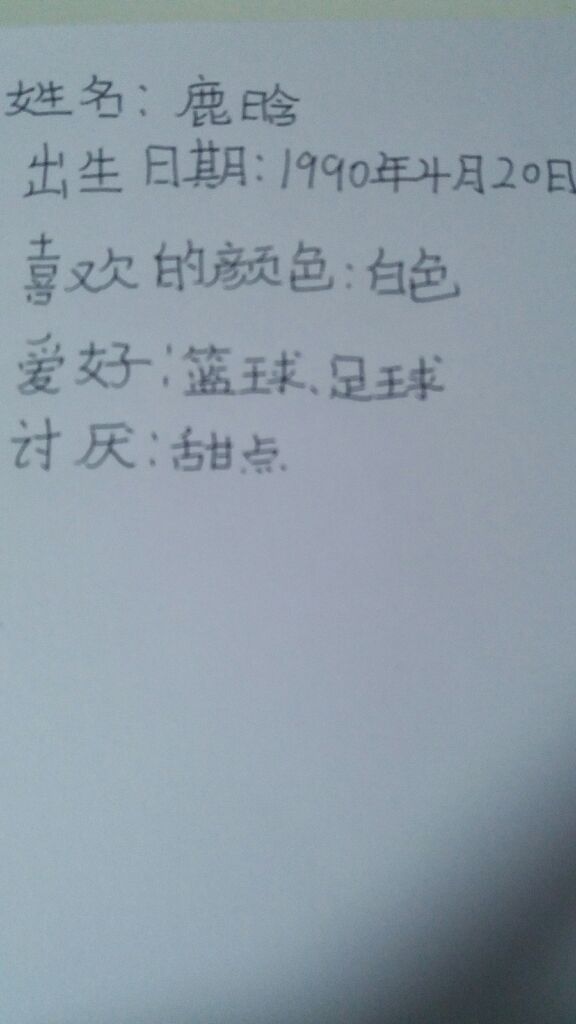 姓名：鹿晗
出生日期：1990年4月20日
喜欢的颜色：白色
爱好：篮球、足球
讨厌：甜点.